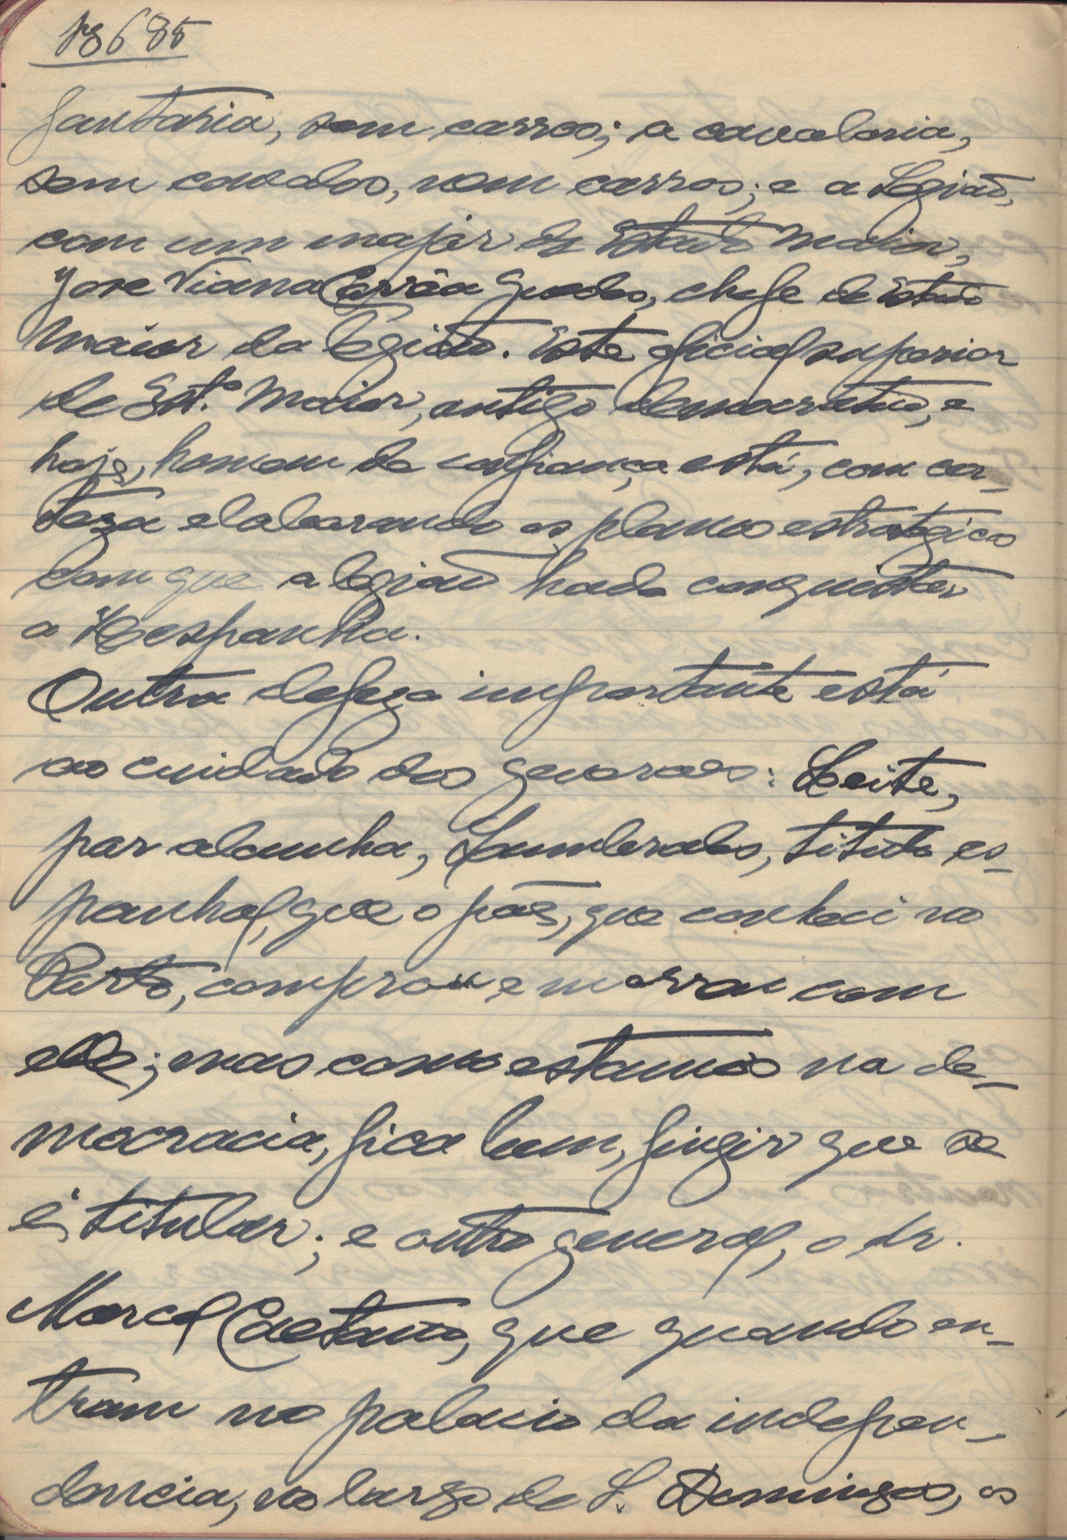 pg 685
fantaria, sem carros; a cavalaria,
sem cavalos, nem carros; e a Legião,
com um major do Estado Maior,
José Viana Corrêa Guedes, chefe do Estado
Maior da Legião. Este oficial superior
de Est.º Maior, antigo democratico, e
hoje, homem da confiança está, com cer-
teza elaborando os planos estrategicos
com que a legião hade conquistar
a Hespanha.
Outra defeza importante está
ao cuidado dos generaes: Leite,
por alcunha, Lumbrales, titulo es-
panhol, que o páe, que conheci no
Porto, comprou e morreu com
elle; mas como estamos na de-
mocracia, fica bem, fingir que se
é titular; e outro general, o dr.
Marcel Caetano, que quando en-
tram no palacio da indepen-
dencia, no largo de S. Domingos, os